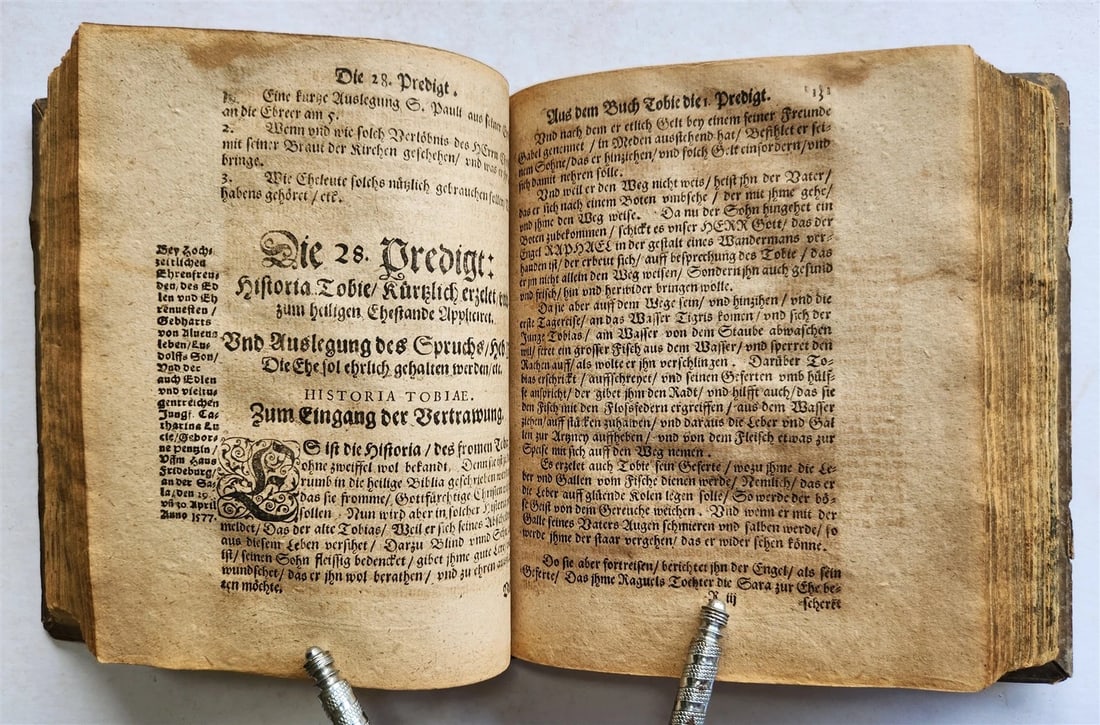 Die 28. Predigt.
Eine kurtze Auslegung S. Pauli aus seiner
an die Ebreer am 5.
2. Wenn vnd wie solch Verlöbnis des HErrn
mit seiner Braut der Kirchen geschehen/ vnd was er
bringe.
3. Wie Eheleute solchs nützlich gebrauchen sollen
habens gehöret/ etc.
Bey Hoch-
zeitlichen
Ehrenfreu-
den, des Ed
len vnd Eh
renuesten/
Gebharts
von Aluens
leben/ Lu-
dolffs Son/
Vnd der
auch Edlen
vnd vieltu-
gentreichen
Jungf. Ca-
tharina Lu
cie/ Gebor-
ne
Vffm Haus
Frideburg/
an der Sa-
la/ den 29
vñ 30 April
Anno 1577.
Die 28. Predigt:
Historia Tobie/ Kürtzlich erzelet/
zum heiligen Ehestande Appliciret,
Vnd Auslegung des Spruchs/ Heb
Die Ehe sol ehrlich gehalten werden/ etc.
HISTORIA TOBIAE.
Zum Eingang der Vertrawung.
ES ist die Historia/ des fromen
ohne zweiffel wol bekandt, Denn sie ist
rumb in die heilige Biblia geschrieben
das sie fromme/ Gottfürchtige Christen
sollen. Nun wird aber in solcher Historia
meldet/ Das der alte Tobias/ Weil er sich seines
aus diesem Leben versihet/ Darzu Blind vnnd
ist/ seinen Sohn fleissig bedencket/ gibet jhme gute
wundschet/ das er jhn wol berathen/ vnd zu ehren
ten möchte.
Aus dem Buch Tobie die 1. Predigt.
Vnd nach dem er etlich Gelt bey einem seiner Freunde
Gabel genennet/ in Meden ausstehend hat/ Befihlet er sei-
nem Sohne/ das er hinziehen/ vnd solch Gelt einfordern/ vnd
sich damit nehren solle.
Vnd weil er den Weg nicht weis/ heist jhn der Vater/
das er sich nach einem Boten vmbsehe/ der mit jhme gehe/
vnd jhme den Weg weise. Da nu der Sohn hingehet ein
Boten zubekommen/ schickt es vnser HERR Gott/ das der
Engel RAPHAEL in der gestalt eines Wandermans ver-
handen ist/ der erbeut sich/ auff besprechung des Tobie/ das
er jm nicht allein den Weg weisen/ Sondern jhn auch gesund
vnd frisch/ hin vnd herwider bringen wolle.
Da sie aber auff dem Wege sein/ vnd hinzihen/ vnd die
erste Tagereise/ an das Wasser Tigris komen/ vnd sich der
Junge Tobias/ am Wasser von dem Staube abwaschen
wil/ feret ein grosser Fisch aus dem Wasser/ vnd sperret den
Rachen auff/ als wolte er jhn verschlingen. Darüber To-
bias erschrickt/ auffschreyet/ vnd seinen Geferten vmb hülf-
fe anspricht/ der gibet jhm den Radt/ vnd hilfft auch/ das sie
den Fisch mit den Flosfedern ergreiffen/ aus dem Wasser
ziehen/ auff stücken zuhawen/ vnd daraus die Leber vnd Gal
len zur Artzney auffheben/ vnd von dem Fleisch etwas zur
Speise mit sich auff den Weg nemen.
Es erzelet auch Tobie sein Geferte/ wozu jhme die Le-
ber vnd Gallen vom Fische dienen werde/ Nemlich/ das er
die Leber auff glüende Kolen legen solle/ So werde der bö-
se Geist von dem Gereuche weichen. Vnd wenn er mit der
Galle seines Vaters Augen schmieren vnd salben werde/ so
werde jhme der staar vergehen/ das er wider sehen könne.
Do sie aber fortreisen/ berichtet jhn der Engel/ als sein
Geferte/ Das jhme Raguels Tochter die Sara zur Ehe be-
R iij
schert